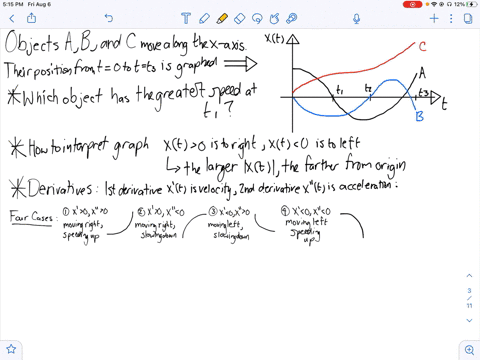 5:15 PM Fri Aug 6
12%
Objects A, B, and C move along the x-axis.
Their position from t=0 to t=t3 is graphed
*Which object has the greatest speed at
t1?
X(t)
C
A
B
t1
t2
t3
t
*How to interpret graph X(t)>0 is to right, X(t)<0 is to left
↳ the larger |X(t)|, the farther from origin
*Derivatives: 1st derivative x'(t) is velocity, 2nd derivative x"(t) is acceleration:
Four Cases:
① x'>0, x">0
moving right,
speeding up
② x'>0, x"<0
moving right,
slowing down
③ x'<0, x">0
moving left,
slowing down
④ x'<0, x"<0
moving left
speeding
up
3
11